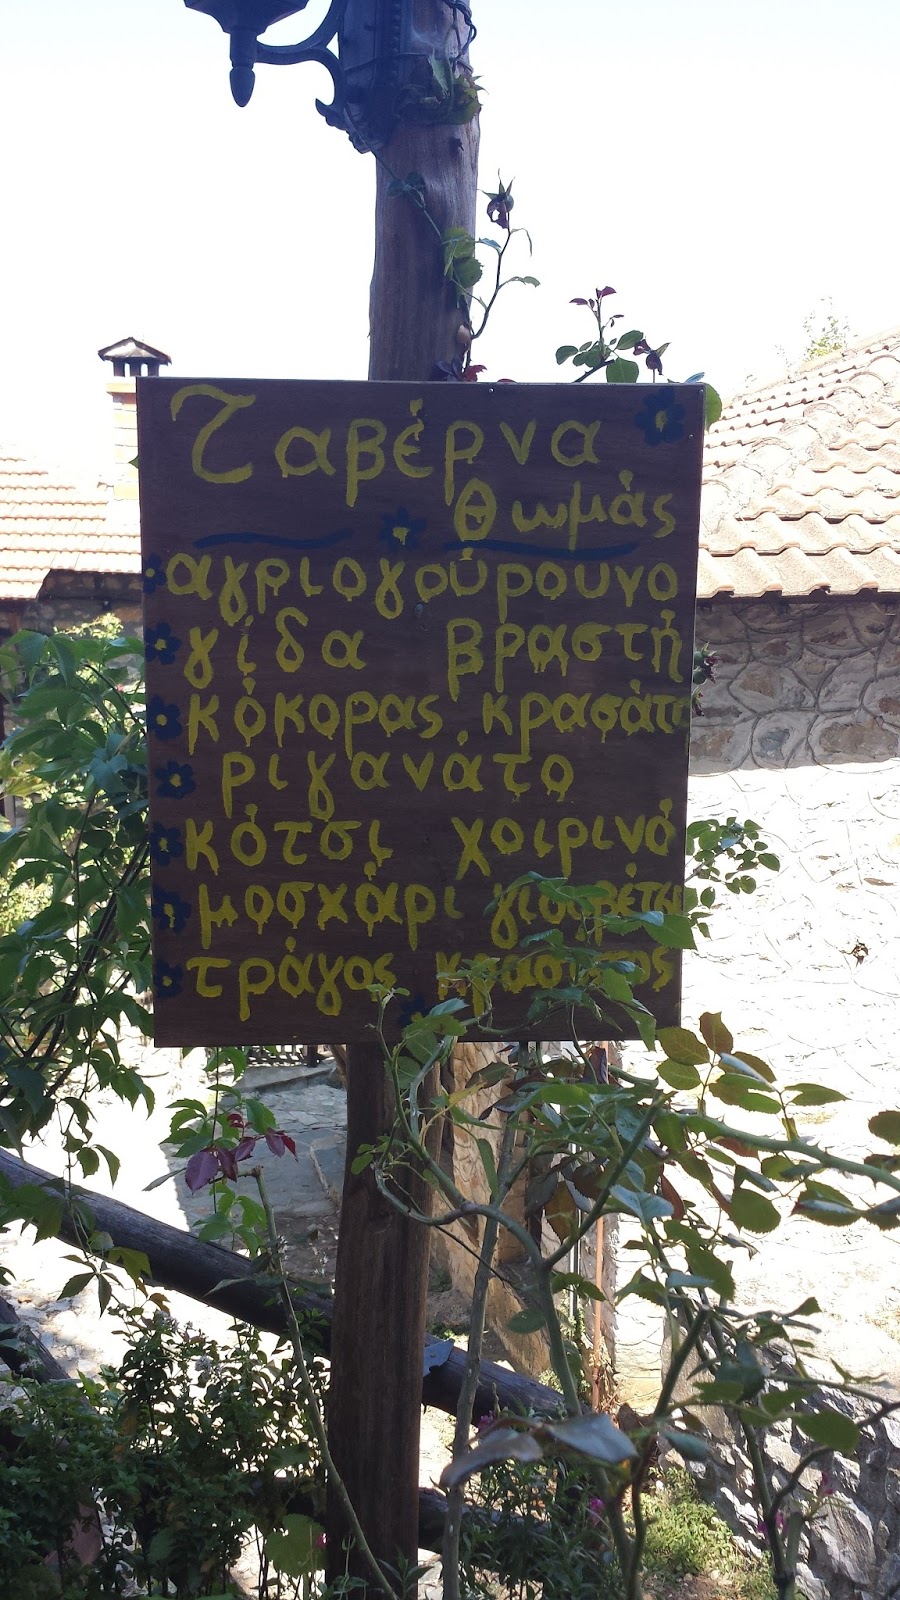 Ταβέρνα
Θωμάς
αγριογούρουνο
γίδα βραστή
κόκορας κρασάτο
ριγανάτο
κότσι χοιρινό
μοσχάρι γιουβέτσι
τράγος κρασάτος